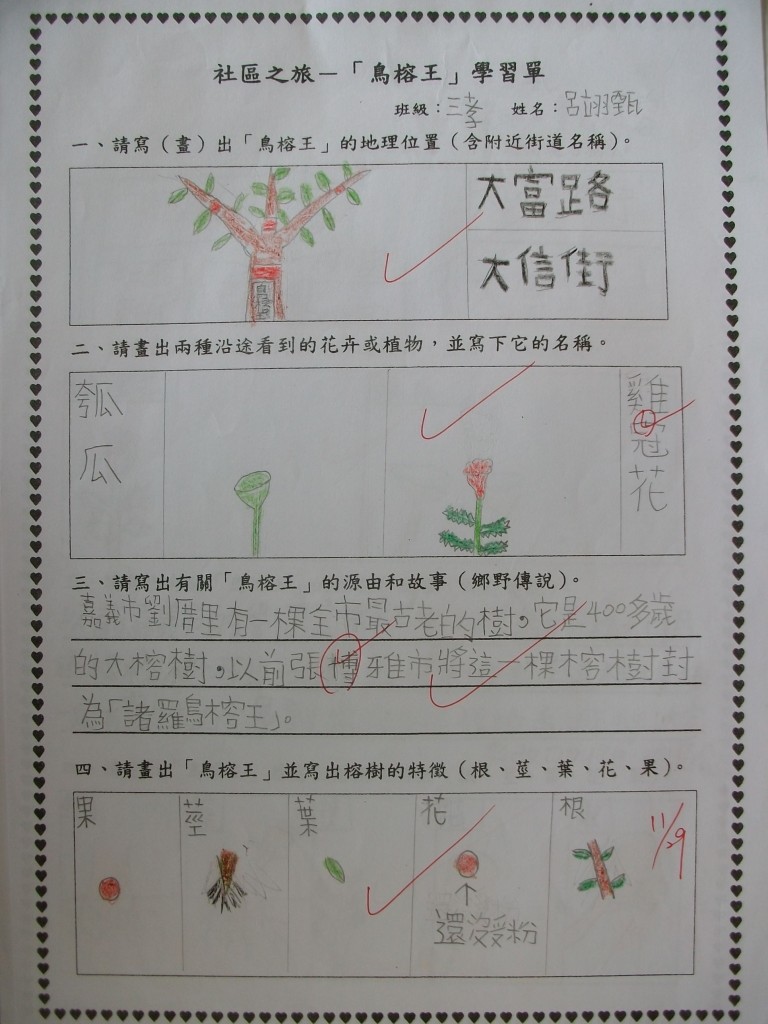 社區之旅－「鳥榕王」學習單
班級：三孝 姓名：呂翊甄
一、請寫（畫）出「鳥榕王」的地理位置（含附近街道名稱）。
大富路
大信街
二、請畫出兩種沿途看到的花卉或植物，並寫下它的名稱。
瓠瓜
雞冠花
三、請寫出有關「鳥榕王」的源由和故事（鄉野傳說）。
嘉義市劉厝里有一棵全市最古老的樹，它是400多歲
的大榕樹，以前張博雅市將這一棵榕樹封
為「諸羅鳥榕王」。
四、請畫出「鳥榕王」並寫出榕樹的特徵（根、莖、葉、花、果）。
果 莖 葉 花 根
還沒受粉
11/29